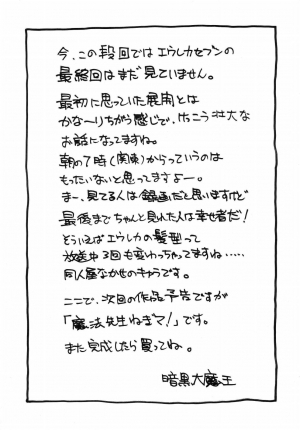 今、この段回ではエウレカセブンの
最終回はまだ見ていません。
最初に思っていた展開とは
かな〜りちがう感じで、けっこう壮大な
お話になってますね。
朝の7時(関東)からっていうのは
もったいないと思ってますよー。
まー、見てる人は録画だと思いますけど
最後までちゃんと見れた人は幸せ者だ!
そういえばエウレカの髪型って
放送中3回も変わっちゃってますね‥‥‥
同人屋なかせのキャラです。
ここで、次回の作品予告ですが
「魔法先生ねぎマ!」です。
また完成したら買ってね。
暗黒大魔王